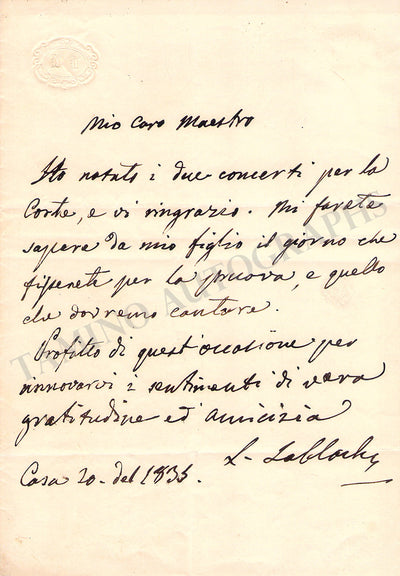 Mio Caro Maestro
Ho notato i due concerti per la
Corte, e vi ringrazio. Mi farete
sapere da mio figlio il giorno che
fisserete per la pruova, e quello
che dovremo cantare.
Profitto di quest'occasione per
rinnovarvi i sentimenti di vera
gratitudine ed amicizia
L. Lablache
Casa 20. del 1835.
TAMINO AUTOGRAPHS